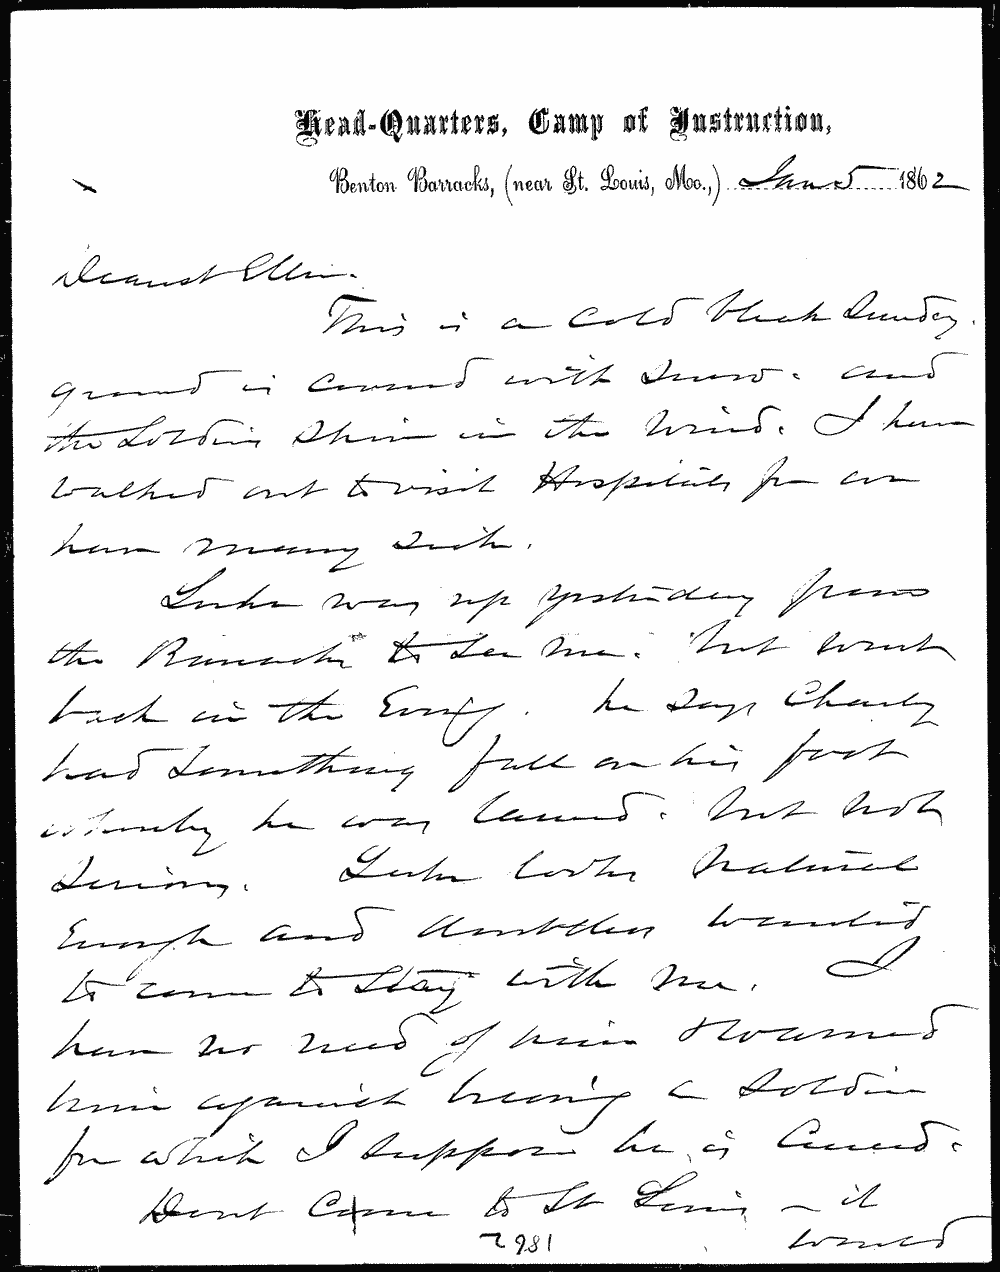 Head-Quarters, Camp of Instruction,
Benton Barracks, (near St. Louis, Mo.,) Jan 5 1862
Dearest Ellen.
This is a cold bleak Sunday.
ground is covered with snow. and
the Soldiers shiver in the wind. I have
walked out to visit Hospitals for we
have many sick.
was up yesterday from
the Barracks to see me. but went
back in the Evng. he says Charley
had something fall on his foot
whereby he was lamed. but not
serious. looks natural
Enough and doubtless wanted
to come to stay with me. I
have no need of him & warned
him against being a soldier
for which I suppose he is
Dont Come to St Louis - it
would
2981